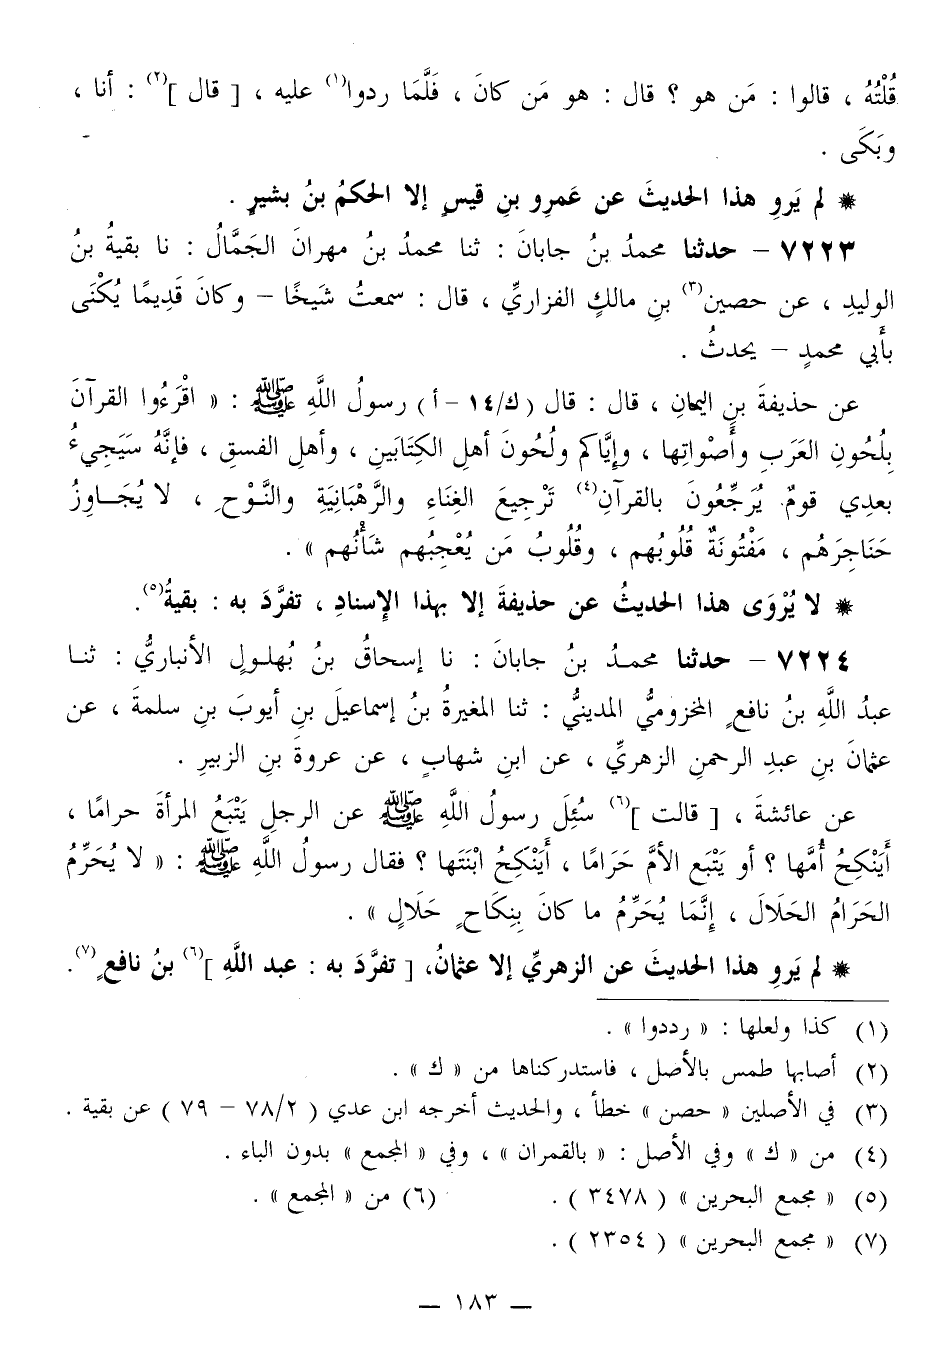 قُلْتُهُ ، قالوا : مَن هو ؟ قال : هو مَن كانَ ، فَلَّمَا ردوا(١) عليه ، [ قال ](٢) : أنا ،
وبَكَى .
* لم يَروِ هذا الحديثَ عن عَمرِو بنِ قيسٍ إلا الحكمُ بنُ بشيرٍ .
٧٢٢٣ – حدثنا محمدُ بنُ جابانَ : ثنا محمدُ بنُ مهرانَ الجَمَّالُ : نا بقيةُ بنُ
الوليدِ ، عن حصين(٣) بنِ مالكٍ الفزاريِّ ، قال : سمعتُ شَيخًا – وكانَ قَدِيمًا يُكْنَى
بأَبي محمدٍ – يحدثُ .
عن حذيفةَ بنِ اليمانِ ، قال : قال (ك/١٤ – أ) رسولُ اللَّهِ ﷺ : « اقْرَءُوا القرآنَ
بِلُحُونِ العَرَبِ وأَصْواتِها ، وإيَّاكم ولُحُونَ أهلِ الكِتَابَينِ ، وأهلِ الفسقِ ، فإنَّهُ سَيَجِيءُ
بعدِي قومٌ يُرَجِّعُونَ بالقرآنِ(٤) تَرْجِيعَ الغِنَاءِ والرَّهْبَانِيَةِ والنَّوْحِ ، لا يُجَـاوِزُ
حَنَاجِرَهُم ، مَفْتُونَةٌ قُلُوبُهم ، وقُلُوبُ مَن يُعْجِبُهم شَأْنُهم » .
* لا يُرْوَى هذا الحديثُ عن حذيفةَ إلا بهذا الإِسنادِ ، تفرَّدَ به : بقيةُ(٥).
٧٢٢٤ – حدثنا محمـدُ بنُ جابانَ : نا إسحاقُ بنُ بُهلـولٍ الأنباريُّ : ثنـا
عبدُ اللَّهِ بنُ نافعٍ المخزوميُّ المدينيُّ : ثنا المغيرةُ بنُ إسماعيلَ بنِ أيوبَ بنِ سلمةَ ، عن
عثمانَ بنِ عبدِ الرحمنِ الزهريِّ ، عن ابنِ شهابٍ ، عن عروةَ بنِ الزبيرِ .
عن عائشةَ ، [ قالت ](٦) سُئِلَ رسولُ اللَّهِ ﷺ عن الرجلِ يَتْبَعُ المرأةَ حرامًا ،
أَيَنْكِحُ أُمَّها ؟ أو يَتْبَع الأمَّ حَرَامًا ، أَيَنْكِحُ ابْنَتَها ؟ فقال رسولُ اللَّهِ ﷺ : « لا يُحَرِّمُ
الحَرَامُ الحَلَالَ ، إنَّمَا يُحَرِّمُ ما كانَ بِنِكَاحٍ حَلَالٍ » .
* لم يَروِ هذا الحديثَ عن الزهريِّ إلا عثمانُ، [ تفرَّدَ به : عبد اللَّهِ ](٦) بنُ نافعٍ(٧).
(١) كذا ولعلها : « رددوا » .
(٢) أصابها طمس بالأصل ، فاستدركناها من « ك » .
(٣) في الأصلين « حصن » خطأ ، والحديث أخرجه ابن عدي ( ٧٨/٢ – ٧٩ ) عن بقية .
(٤) من « ك » وفي الأصل : « بالقمران » ، وفي « المجمع » بدون الباء .
(٥) « مجمع البحرين » ( ٣٤٧٨ ) . (٦) من « المجمع » .
(٧) « مجمع البحرين » ( ٢٣٥٤ ) .
— ١٨٣ —